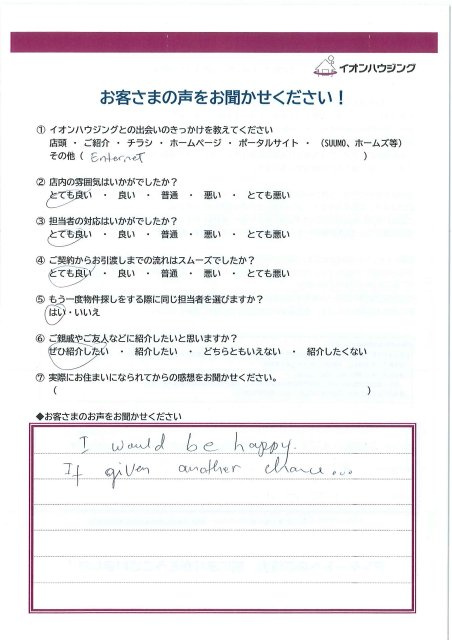 イオンハウジング
お客さまの声をお聞かせください！
① イオンハウジングとの出会いのきっかけを教えてください
店頭 ・ ご紹介 ・ チラシ ・ ホームページ ・ ポータルサイト ・ （SUUMO、ホームズ等）
その他（ Enternet ）
② 店内の雰囲気はいかがでしたか？
とても良い ・ 良い ・ 普通 ・ 悪い ・ とても悪い
③ 担当者の対応はいかがでしたか？
とても良い ・ 良い ・ 普通 ・ 悪い ・ とても悪い
④ ご契約からお引渡しまでの流れはスムーズでしたか？
とても良い ・ 良い ・ 普通 ・ 悪い ・ とても悪い
⑤ もう一度物件探しをする際に同じ担当者を選びますか？
はい・いいえ
⑥ ご親戚やご友人などに紹介したいと思いますか？
ぜひ紹介したい ・ 紹介したい ・ どちらともいえない ・ 紹介したくない
⑦ 実際にお住まいになられてからの感想をお聞かせください。
（ ）
◆お客さまのお声をお聞かせください
I would be happy.
If given another chance...